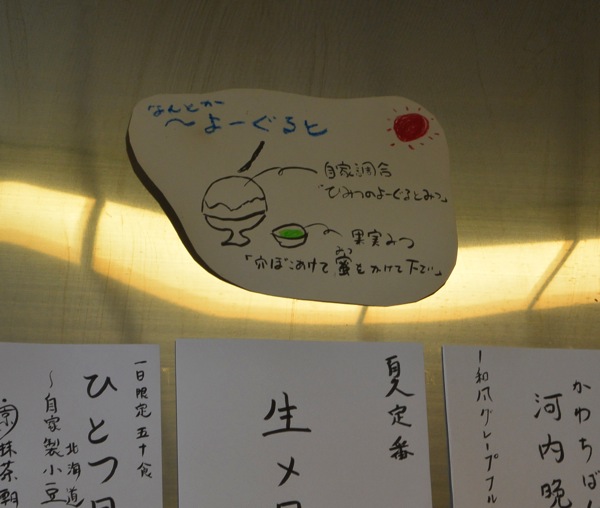 なんとか
～よーぐると
自家調合
「ひみつのよーぐるとみつ」
果実みつ
みつ
「穴ぼこあけて蜜をかけて下さい」
かわちばん
河内晩
ー和風グレープフル
夏定番
生メ
一日限定五十食
ひとつ
北海道
～自家製小豆
抹茶